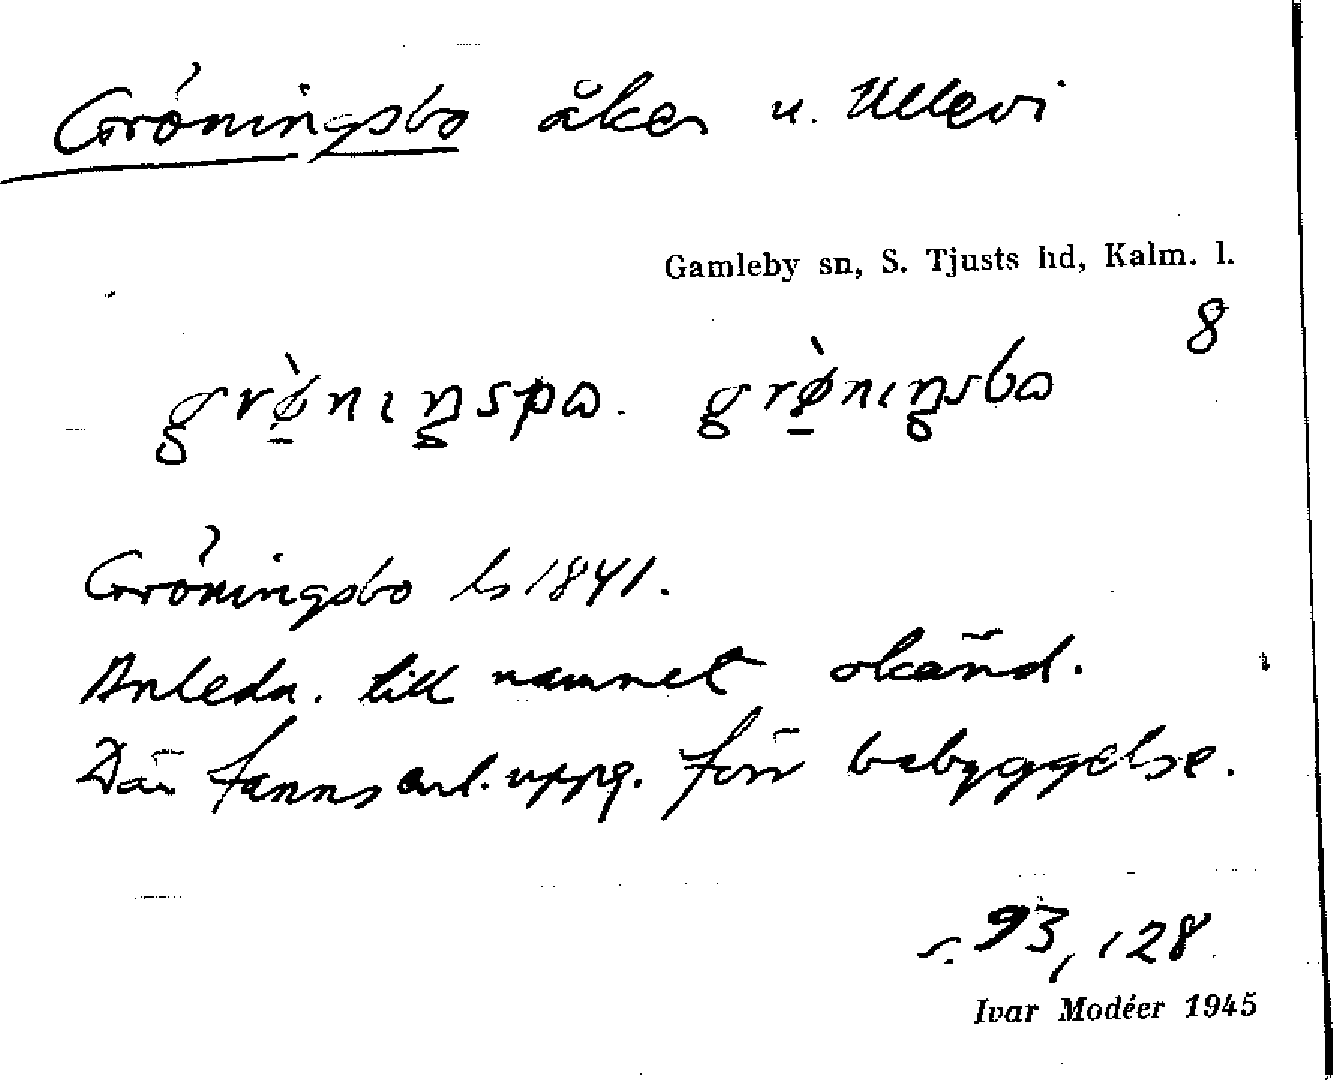 Gröningsbo åker u. Ullevi
Gamleby sn, S. Tjusts hd, Kalm. l.
8
grø̀niŋspa. grø̀niŋsba
Gröningsbo ls 1841.
Anledn. till namnet okänd.
Där fanns enl. uppg. förr bebyggelse.
s. 93, 128
Ivar Modéer 1945